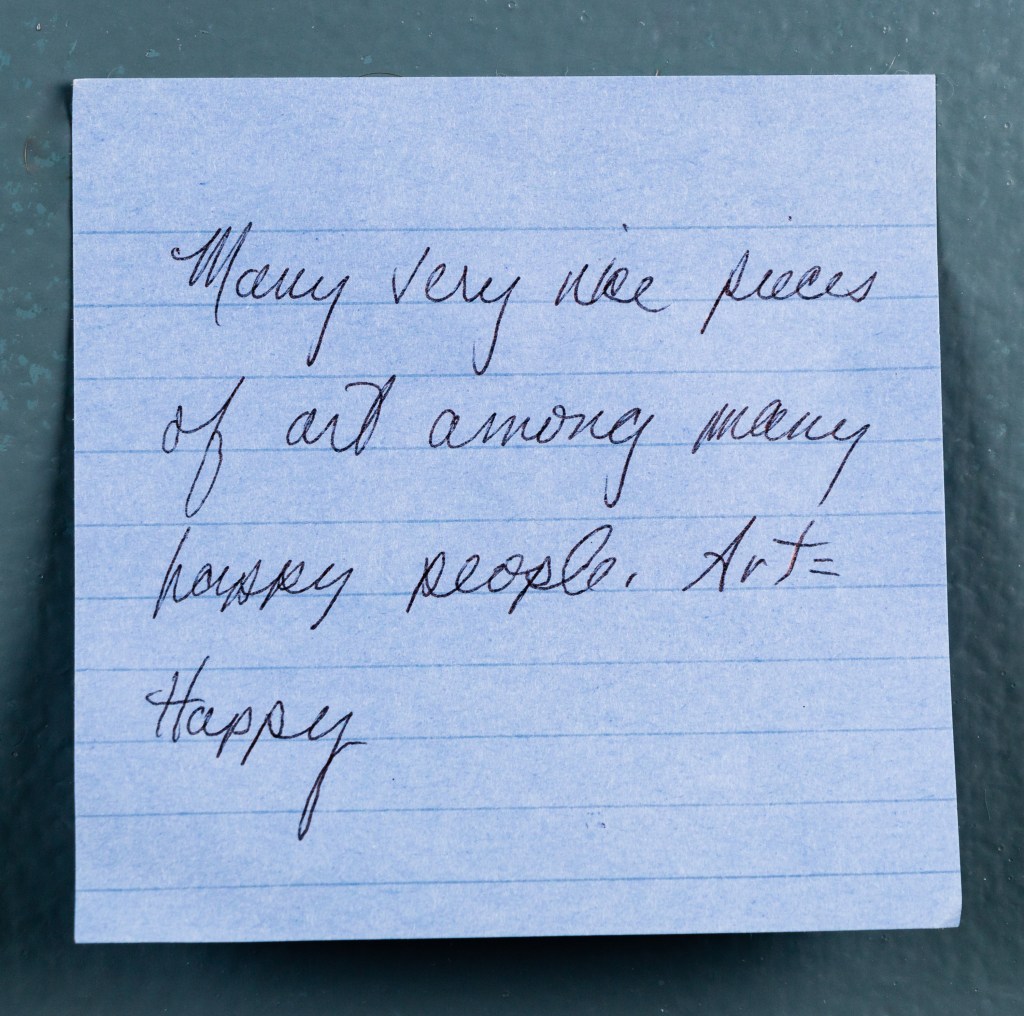 Many very nice pieces
of art among many
happy people. Art=
Happy